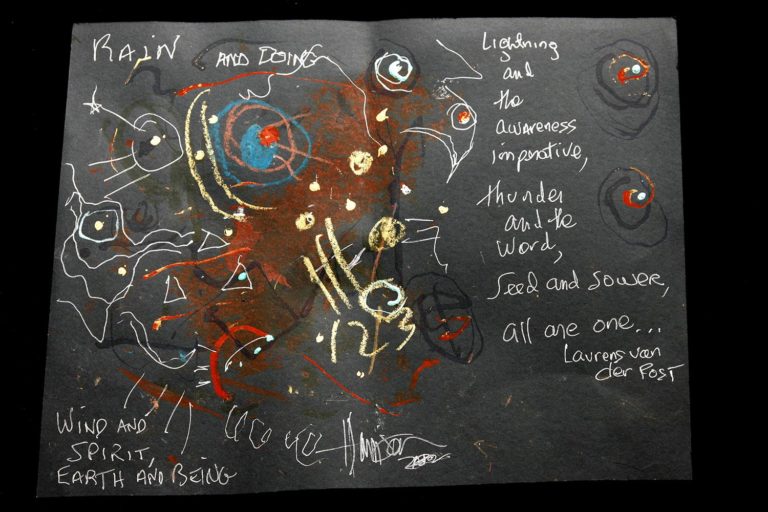 RAIN AND DOING
Lightning
and
the
awareness
imperative,
thunder
and the
word,
seed and sower,
all are one...
Laurens van
der Post
123
WIND AND
SPIRIT,
EARTH AND BEING